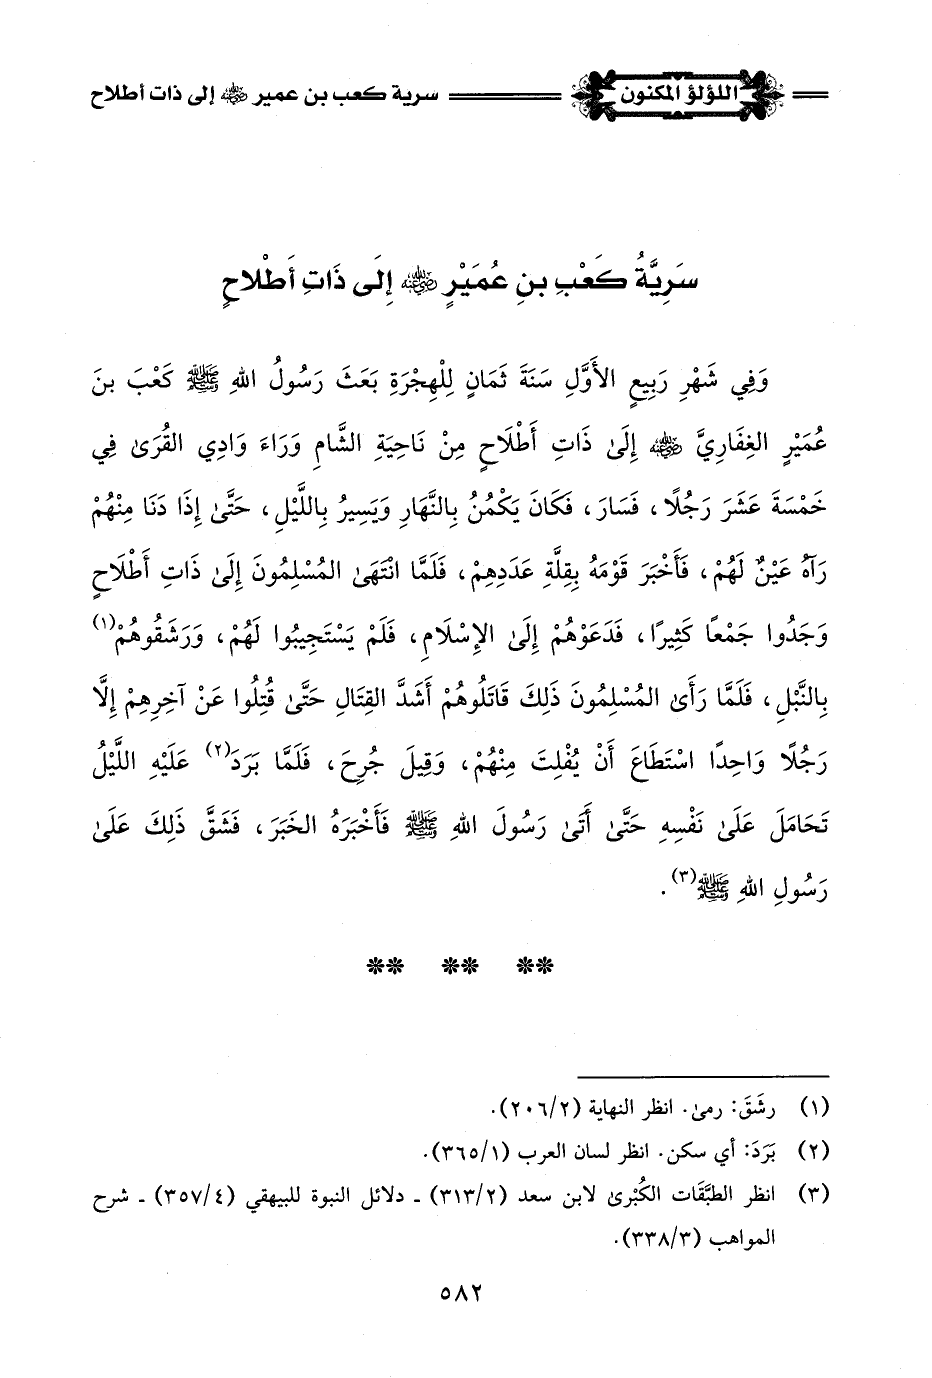 اللؤلؤ المكنون سرية كعب بن عمير ﵁ إلى ذات أطلاح
سَرِيَّةُ كَعْبِ بنِ عُمَيْرٍ ﵁ إِلَى ذَاتِ أَطْلاحٍ
وَفِي شَهْرِ رَبِيعٍ الأَوَّلِ سَنَةَ ثَمَانٍ لِلْهِجْرَةِ بَعَثَ رَسُولُ اللهِ ﷺ كَعْبَ بنَ
عُمَيْرٍ الغِفَارِيَّ ﵁ إِلَىٰ ذَاتِ أَطْلَاحٍ مِنْ نَاحِيَةِ الشَّامِ وَرَاءَ وَادِي القُرَىٰ فِي
خَمْسَةَ عَشَرَ رَجُلًا، فَسَارَ، فَكَانَ يَكْمُنُ بِالنَّهَارِ وَيَسِيرُ بِاللَّيْلِ، حَتَّىٰ إِذَا دَنَا مِنْهُمْ
رَآهُ عَيْنٌ لَهُمْ، فَأَخْبَرَ قَوْمَهُ بِقِلَّةِ عَدَدِهِمْ، فَلَمَّا انْتَهَىٰ المُسْلِمُونَ إِلَىٰ ذَاتِ أَطْلَاحٍ
وَجَدُوا جَمْعًا كَثِيرًا، فَدَعَوْهُمْ إِلَىٰ الإِسْلَامِ، فَلَمْ يَسْتَجِيبُوا لَهُمْ، وَرَشَقُوهُمْ(١)
بِالنَّبْلِ، فَلَمَّا رَأَىٰ المُسْلِمُونَ ذَلِكَ قَاتَلُوهُمْ أَشَدَّ القِتَالِ حَتَّىٰ قُتِلُوا عَنْ آخِرِهِمْ إِلَّا
رَجُلًا وَاحِدًا اسْتَطَاعَ أَنْ يُفْلِتَ مِنْهُمْ، وَقِيلَ جُرِحَ، فَلَمَّا بَرَدَ(٢) عَلَيْهِ اللَّيْلُ
تَحَامَلَ عَلَىٰ نَفْسِهِ حَتَّىٰ أَتَىٰ رَسُولَ اللهِ ﷺ فَأَخْبَرَهُ الخَبَرَ، فَشَقَّ ذَلِكَ عَلَىٰ
رَسُولِ اللهِ ﷺ(٣).
** ** **
(١) رشَقَ: رمىٰ. انظر النهاية (٢٠٦/٢).
(٢) بَرَدَ: أي سكن. انظر لسان العرب (٣٦٥/١).
(٣) انظر الطبَّقَات الكُبْرىٰ لابن سعد (٣١٣/٢) ـ دلائل النبوة للبيهقي (٣٥٧/٤) ـ شرح
المواهب (٣٣٨/٣).
٥٨٢